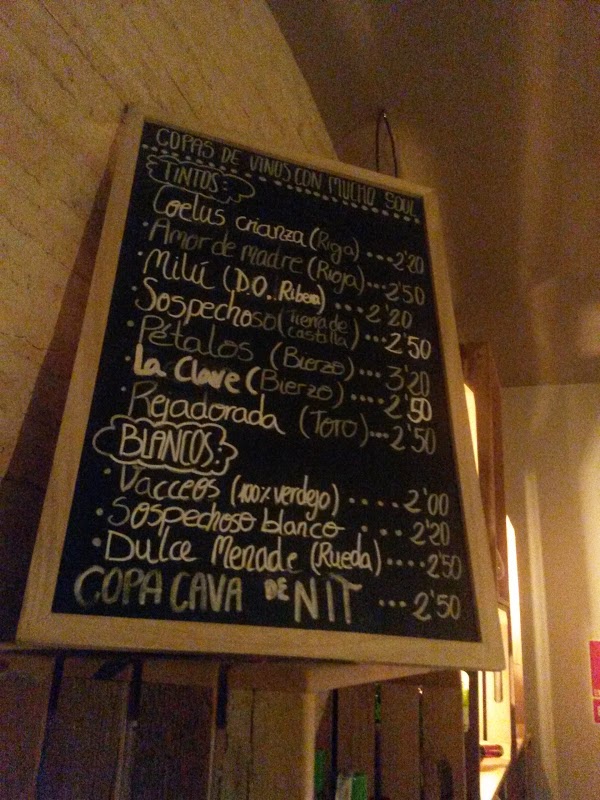 COPAS DE VINOS CON MUCHO SOUL
TINTOS:
• Coelus crianza (Rioja) .... 2'20
• Amor de madre (Rioja) .... 2'50
• Milú (D.O. Ribera) .... 2'20
• Sospechoso (Tierra de Castilla) ... 2'50
• Pétalos (Bierzo) ... 3'20
• La Clave (Bierzo) .... 2'50
• Rejadorada (Toro) ... 2'50
BLANCOS:
• Vacceos (100% verdejo) ..... 2'00
• Sospechoso blanco . . . 2'20
• Dulce Menade (Rueda) .... 2'50
COPA CAVA DE NIT ... 2'50